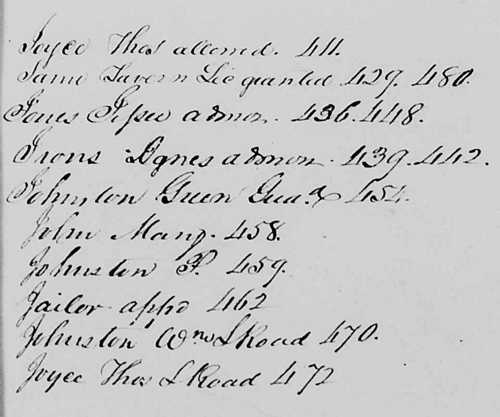 Joyce Thos allowed. 411.
Same Tavern Lic granted 429. 480.
Jones admor. 436. 448.
Irons Agnes admon. 439. 442.
Johnston Green Gua. & 454.
John Manž. 458.
Johnston P. 459.
Jailor appd 462
Johnston Wm L Road 470.
Joyce Thos L Road 472